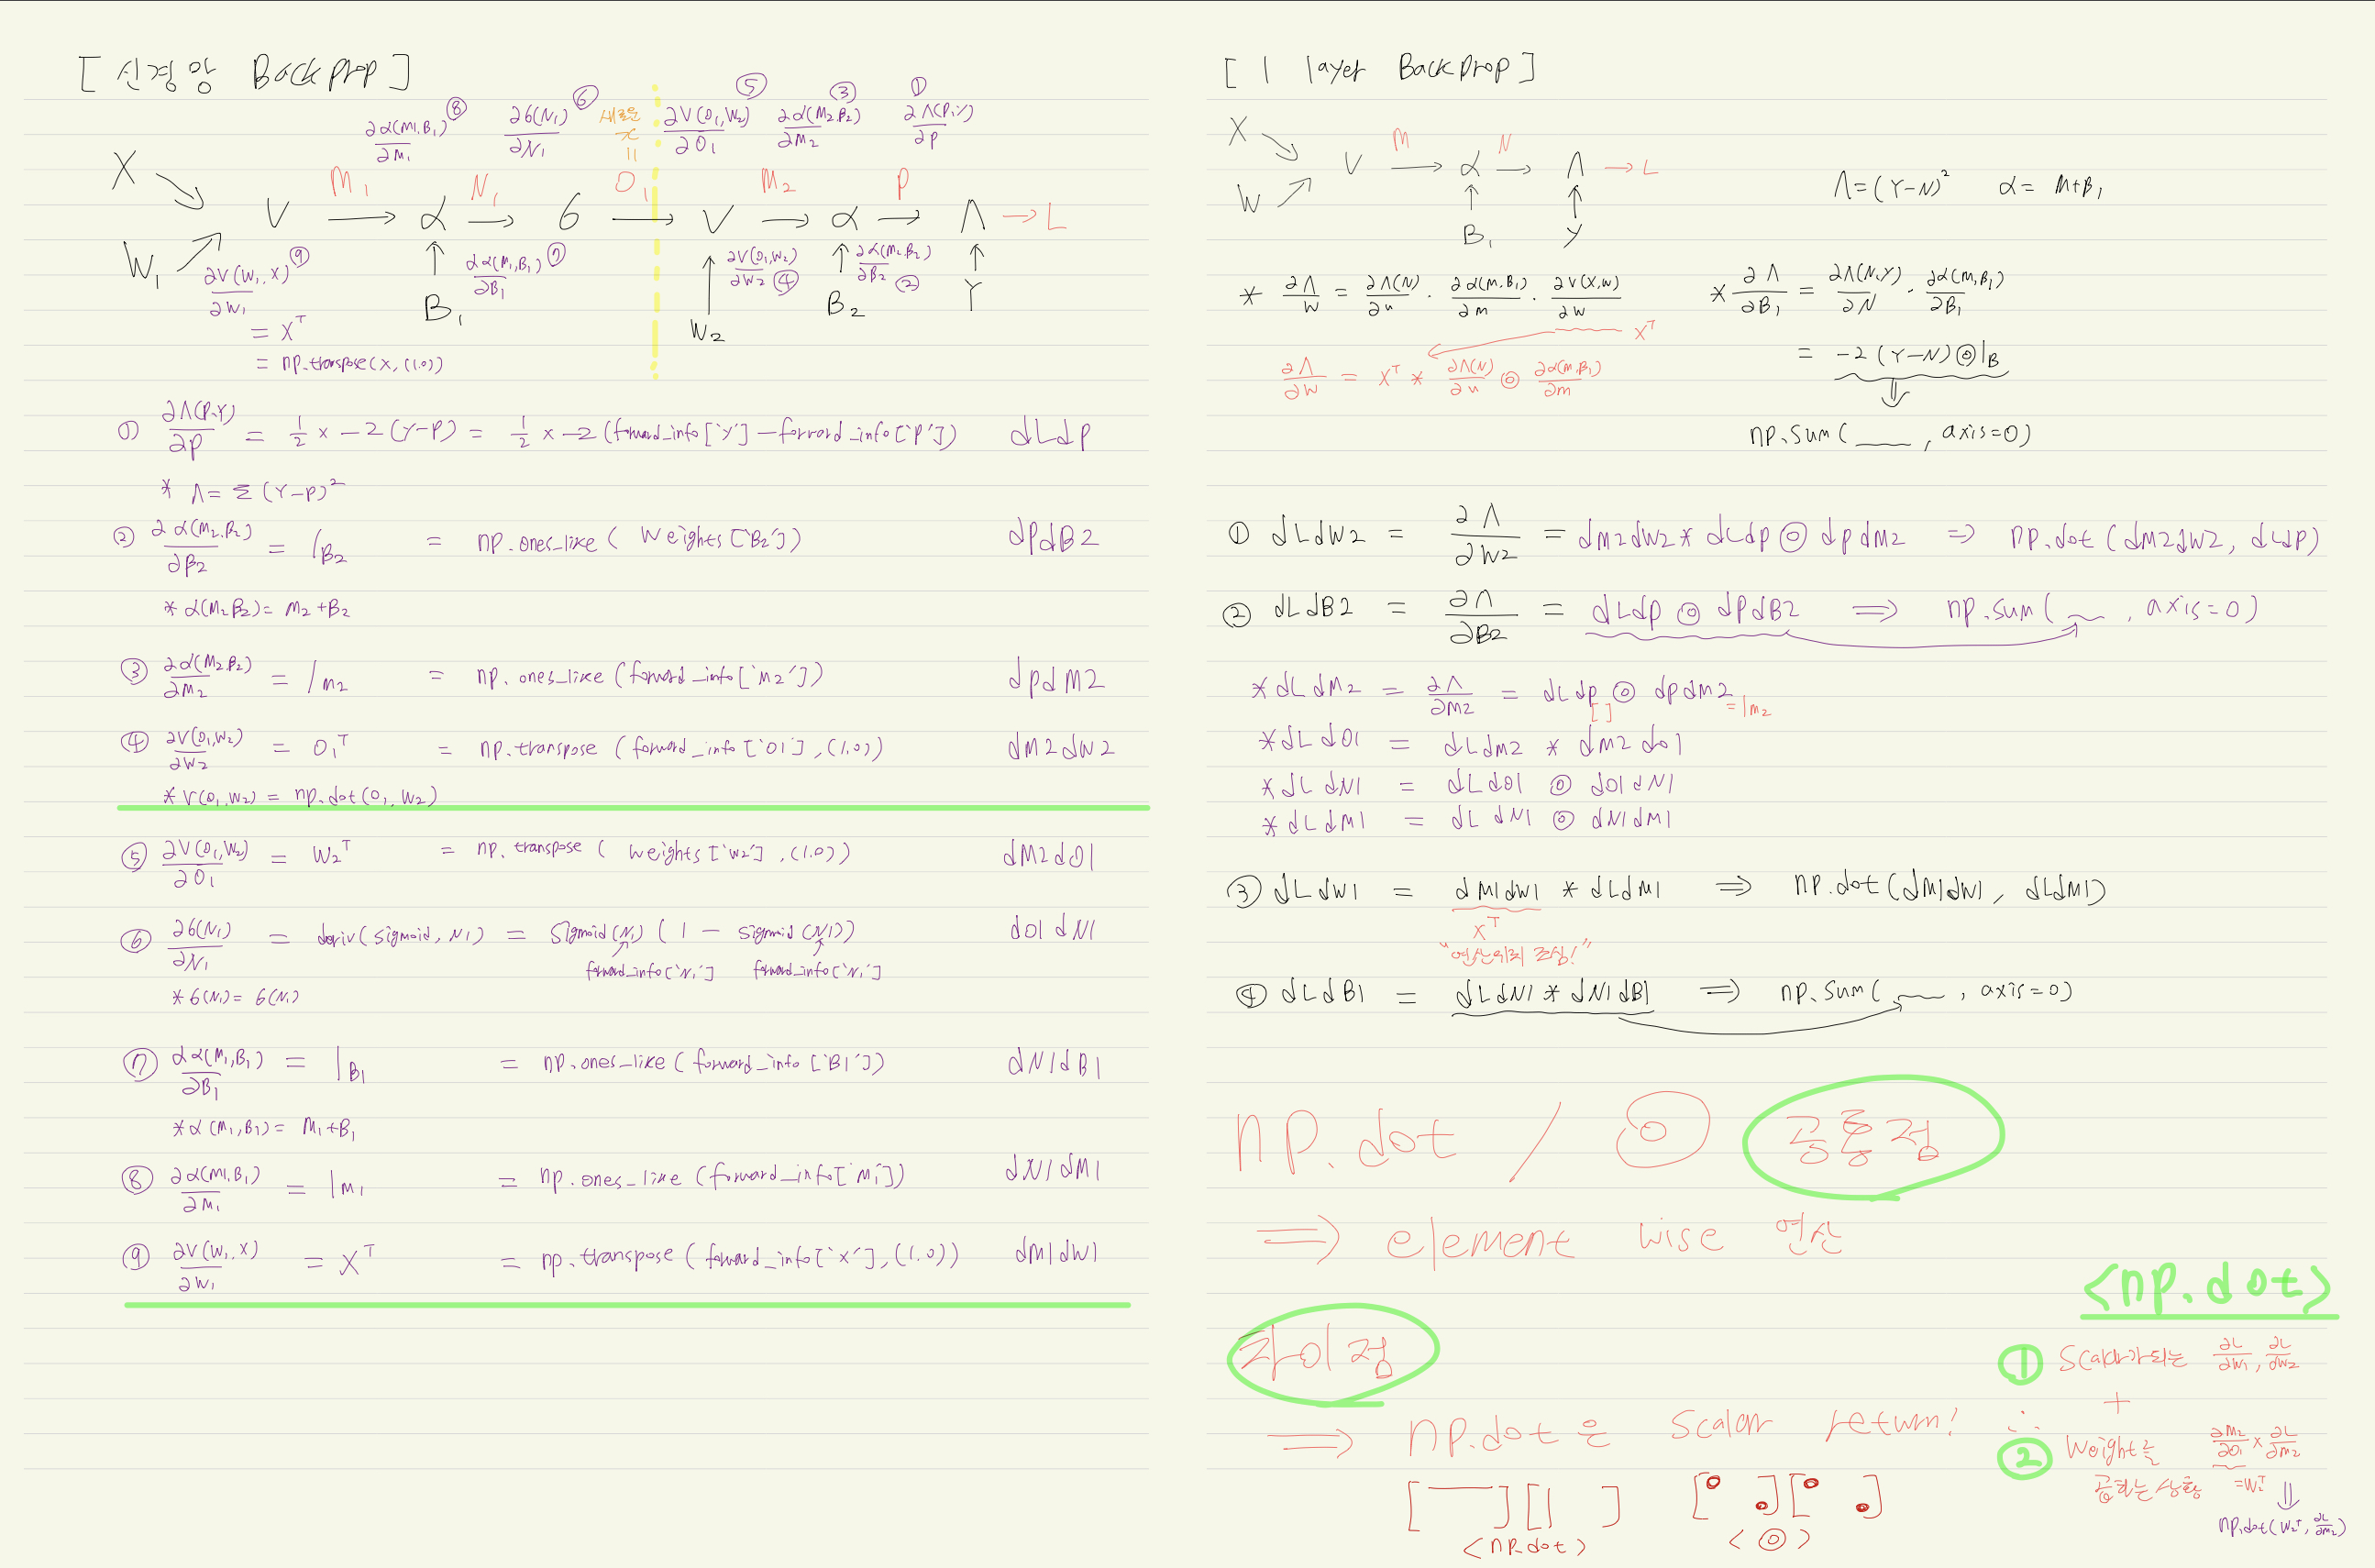 [ 신경망 Backprop ]
⑧ ⑥ 새로운 ⑤ ③ ①
∂α(M1,B1)/∂M1 ∂6(N1)/∂N1 x ∂V(O1,W2)/∂O1 ∂α(M2,B2)/∂M2 ∂Λ(P,Y)/∂P
=
X M1 N1 O1 M2 P
V → α → 6 → V → α → Λ → L
W1 ∂V(W1,X)/∂W1 ⑨ ∂α(M1,B1)/∂B1 ⑦ ∂V(O1,W2)/∂W2 ④ ∂α(M2,B2)/∂B2 ②
B1 W2 B2 Y
= X^T
= np.transpose(X,(1.0))
① ∂Λ(P,Y)/∂P = 1/2 × -2(Y-P) = 1/2 × -2(forward_info['Y']-forward_info['P']) dLdP
* Λ = Σ(Y-P)²
② ∂α(M2,B2)/∂B2 = 1B2 = np.ones_like( Weights['B2']) dPdB2
* α(M2B2) = M2+B2
③ ∂α(M2,B2)/∂M2 = 1M2 = np.ones_like(forward_info['M2']) dPdM2
④ ∂V(O1,W2)/∂W2 = O1^T = np.transpose(forward_info['O1'],(1.0)) dM2dW2
* V(O1,W2) = np.dot(O1,W2)
⑤ ∂V(O1,W2)/∂O1 = W2^T = np.transpose( Weights['W2'],(1.0)) dM2dO1
⑥ ∂6(N1)/∂N1 = deriv(sigmoid, N1) = Sigmoid(N1)(1 - sigmoid(N1)) dO1dN1
forward_info['N1'] forward_info['N1']
* 6(N1) = 6(N1)
⑦ ∂α(M1,B1)/∂B1 = 1B1 = np.ones_like(forward_info['B1']) dN1dB1
* α(M1,B1) = M1+B1
⑧ ∂α(M1,B1)/∂M1 = 1M1 = np.ones_like(forward_info['M1']) dN1dM1
⑨ ∂V(W1,X)/∂W1 = X^T = np.transpose(forward_info['X'],(1.0)) dM1dW1
[ 1 layer Backprop ]
X M N
V → α → Λ → L
W B1 Y
Λ=(Y-N)² α= M+B1
* ∂Λ/W = ∂Λ(N)/∂N · ∂α(M,B1)/∂M · ∂V(X,W)/∂W
X^T
∂Λ/∂W = X^T * ∂Λ(N)/∂N ⊙ ∂α(M,B1)/∂M
* ∂Λ/∂B1 = ∂Λ(N,Y)/∂N · ∂α(M,B1)/∂B1
= -2(Y-N)⊙1B
⇓
np.sum( ___ , axis=0)
① dLdW2 = ∂Λ/∂W2 = dM2dW2 * dLdP ⊙ dPdM2 ⇒ np.dot(dM2dW2, dLdP)
② dLdB2 = ∂Λ/∂B2 = dLdP ⊙ dPdB2 ⇒ np.sum( ~ , axis=0)
* dLdM2 = ∂Λ/∂M2 = dLdP ⊙ dPdM2
[ ] =1M2
* dLdO1 = dLdM2 * dM2dO1
* dLdN1 = dLdO1 ⊙ dO1dN1
* dLdM1 = dLdN1 ⊙ dN1dM1
③ dLdW1 = dM1dW1 * dLdM1 ⇒ np.dot(dM1dW1, dLdM1)
X^T
"연산위치 조심!"
④ dLdB1 = dLdN1 * dN1dB1 ⇒ np.sum( ~ , axis=0)
np.dot / ⊙ 공통점
⇒ element wise 연산
차이점
⇒ np.dot은 Scalar return! ∴
[ ] [ ] [ ] [ ]
<np.dot> <⊙>
<np.dot>
① Scalar가 되는 ∂L/∂W1, ∂L/∂W2
+
② Weight를 ∂M2/∂O1 × ∂L/∂M2
곱하는 상황 =W2^T ⇓
np.dot(W2^T, ∂L/∂M2)